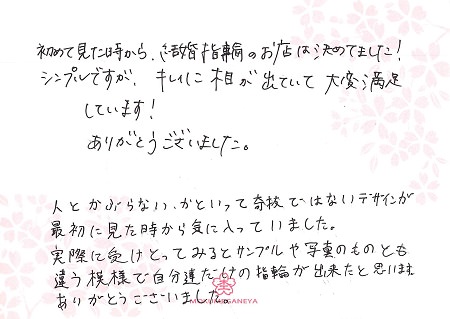 初めて見た時から、結婚指輪のお店は決めてました!
シンプルですが、キレイに相が出ていて大変満足
しています!
ありがとうございました。
人とかぶらない、かといって奇抜ではないデザインが
最初に見た時から気に入っていました。
実際に受けとってみるとサンプルや写真のものとも
違う模様で自分達だけの指輪が出来たと思います
ありがとうございました。
MOKUMEGANEYA